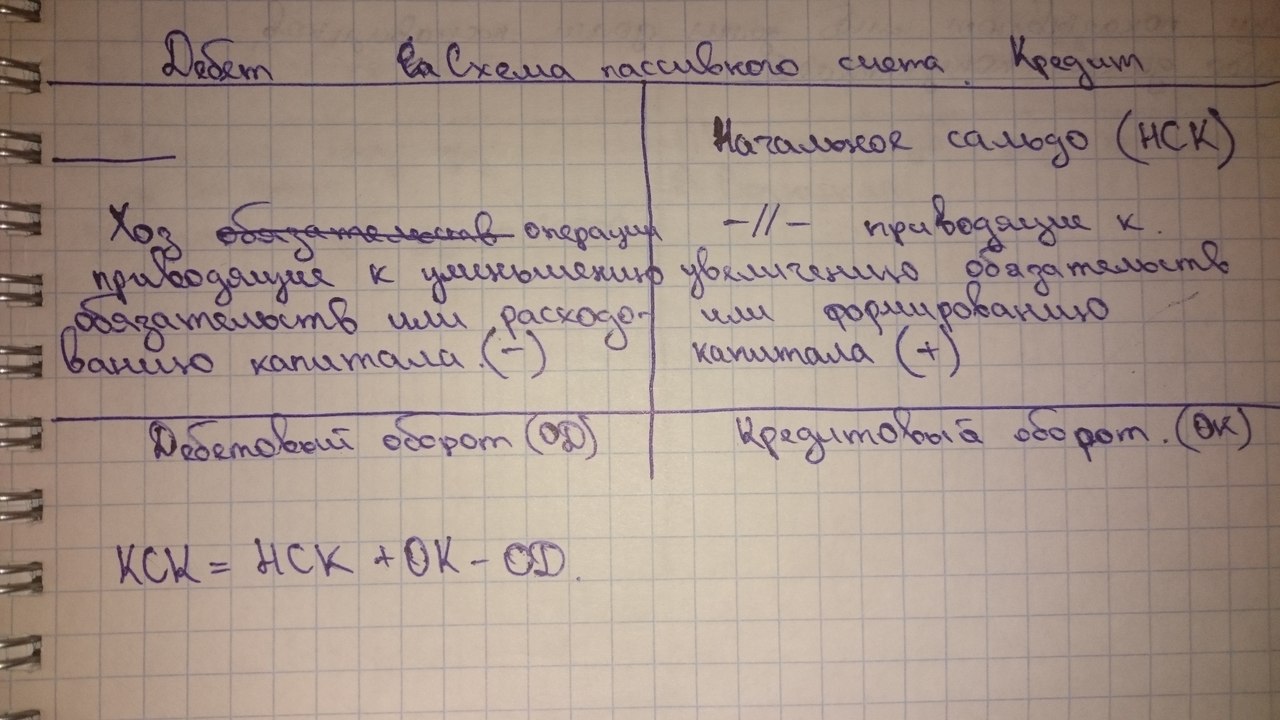 Дебет Схема пассивного счета. Кредит
Начальное сальдо (НСК)
Хоз обязательств операции
приводящие к уменьшению
обязательств или расходо-
ванию капитала. (-)
-//- приводящие к.
увеличению обязательств
или формированию
капитала (+)
Дебетовый оборот (ОД)
Кредитовый оборот. (ОК)
КСК = НСК + ОК - ОД.